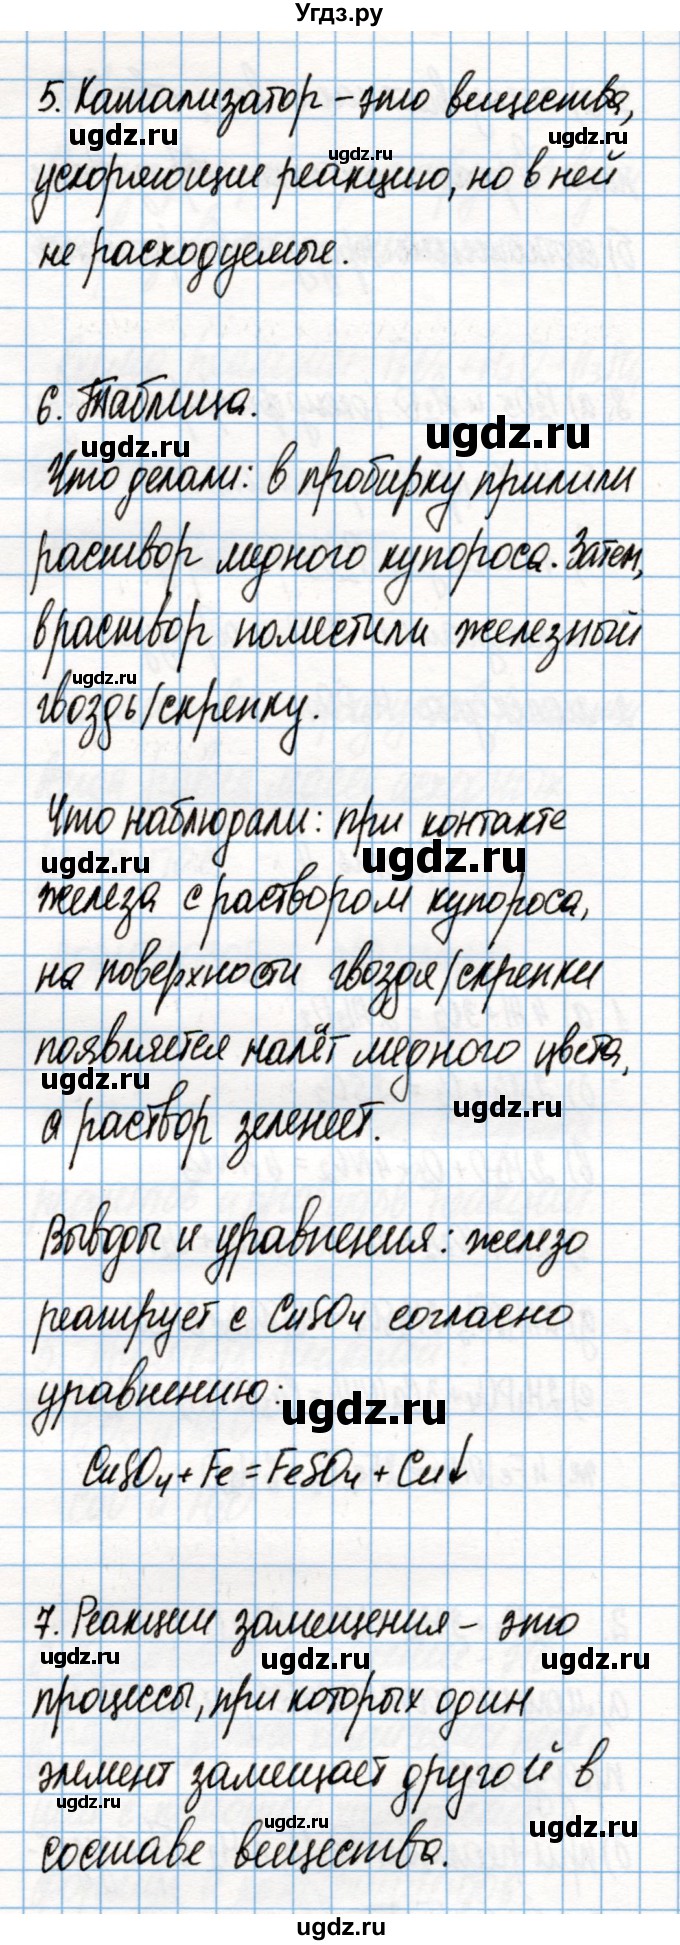 Угдз.ру
5. Катализатор – это вещества,
ugdz.ru
ugdz.ru
ugdz.ru
ускоряющие реакцию, но в ней
не расходуемые.
6. Таблица.
ugdz.ru
ugdz.ru
Что делали: в пробирку прилили
раствор медного купороса. Затем,
в раствор поместили железный
ugdz.ru
гвоздь/скрепку.
Что наблюдали: при контакте
ugdz.ru
ugdz.ru
железа с раствором купороса,
на поверхности гвоздя/скрепки
появляется налёт медного цвета,
ugdz.ru
ugdz.ru
а раствор зеленеет.
Выводы и уравнения: железо
реагирует с CuSO4 согласно
уравнению:
ugdz.ru
CuSO4 + Fe = FeSO4 + Cu↓
7. Реакции замещения – это
ugdz.ru
ugdz.ru
ugdz.ru
процессы, при которых один
элемент замещает другой в
ugdz.ru
ugdz.ru
ugdz.ru
ugdz.ru
составе вещества.
ugdz.ru